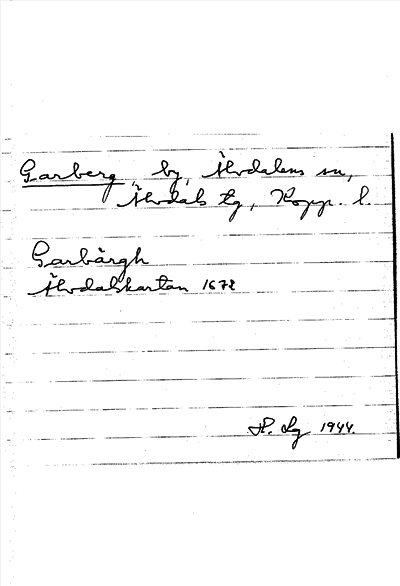 Garberg, by, Älvdalens sn,
Älvdals tg, Kopp. l.
Garbärgh
Älvdalskartan 1672
H. Lg 1944.